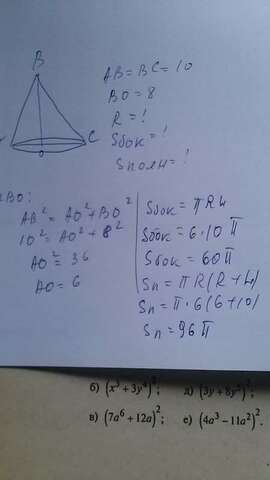 B
AB = BC = 10
BO = 8
R = ?
Sбок = ?
Sполн = ?
C
O
ABO:
AB² = AO² + BO²
10² = AO² + 8²
AO² = 36
AO = 6
Sбок = πRL
Sбок = 6·10π
Sбок = 60π
Sп = πR(R+L)
Sп = π·6(6+10)
Sп = 96π
б) (x³ + 3y⁴)²; д) (3y + 8y²)²;
в) (7a⁶ + 12a)²; е) (4a³ − 11a²)².